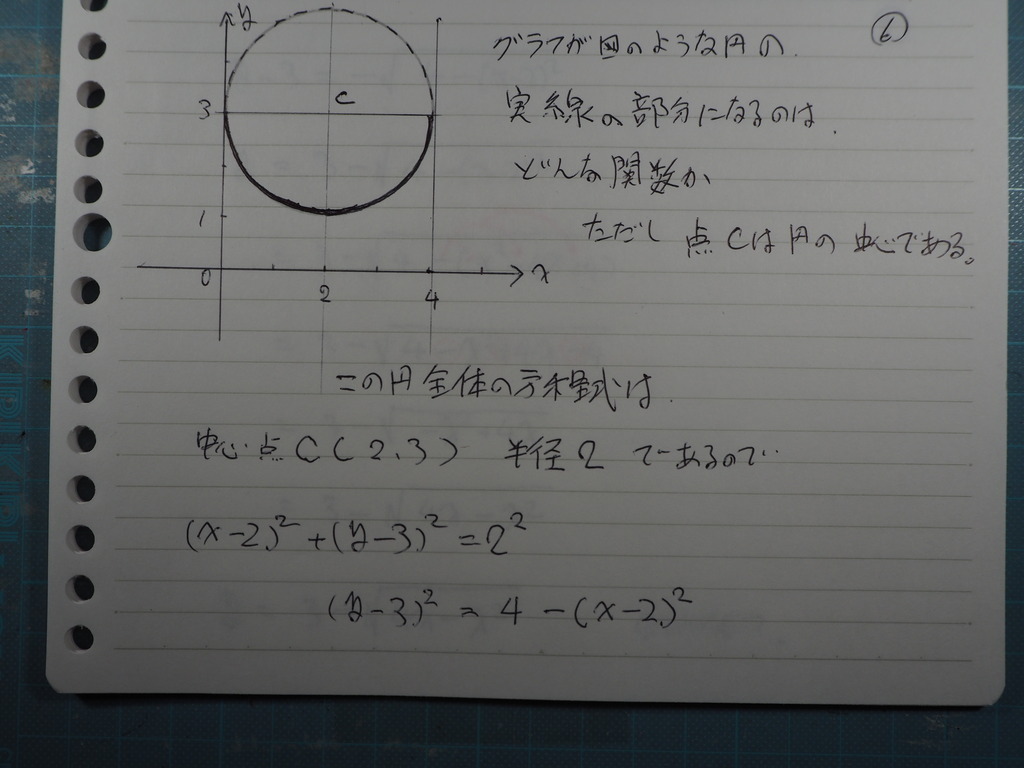 ⑥
グラフが図のような円の
実線の部分になるのは、
どんな関数か
ただし 点Cは円の中心である。
y
C
3
1
0
2
4
x
この円全体の方程式は、
中心点C(2,3) 半径2 であるので
(x-2)² +(y-3)² = 2²
(y-3)² = 4 -(x-2)²